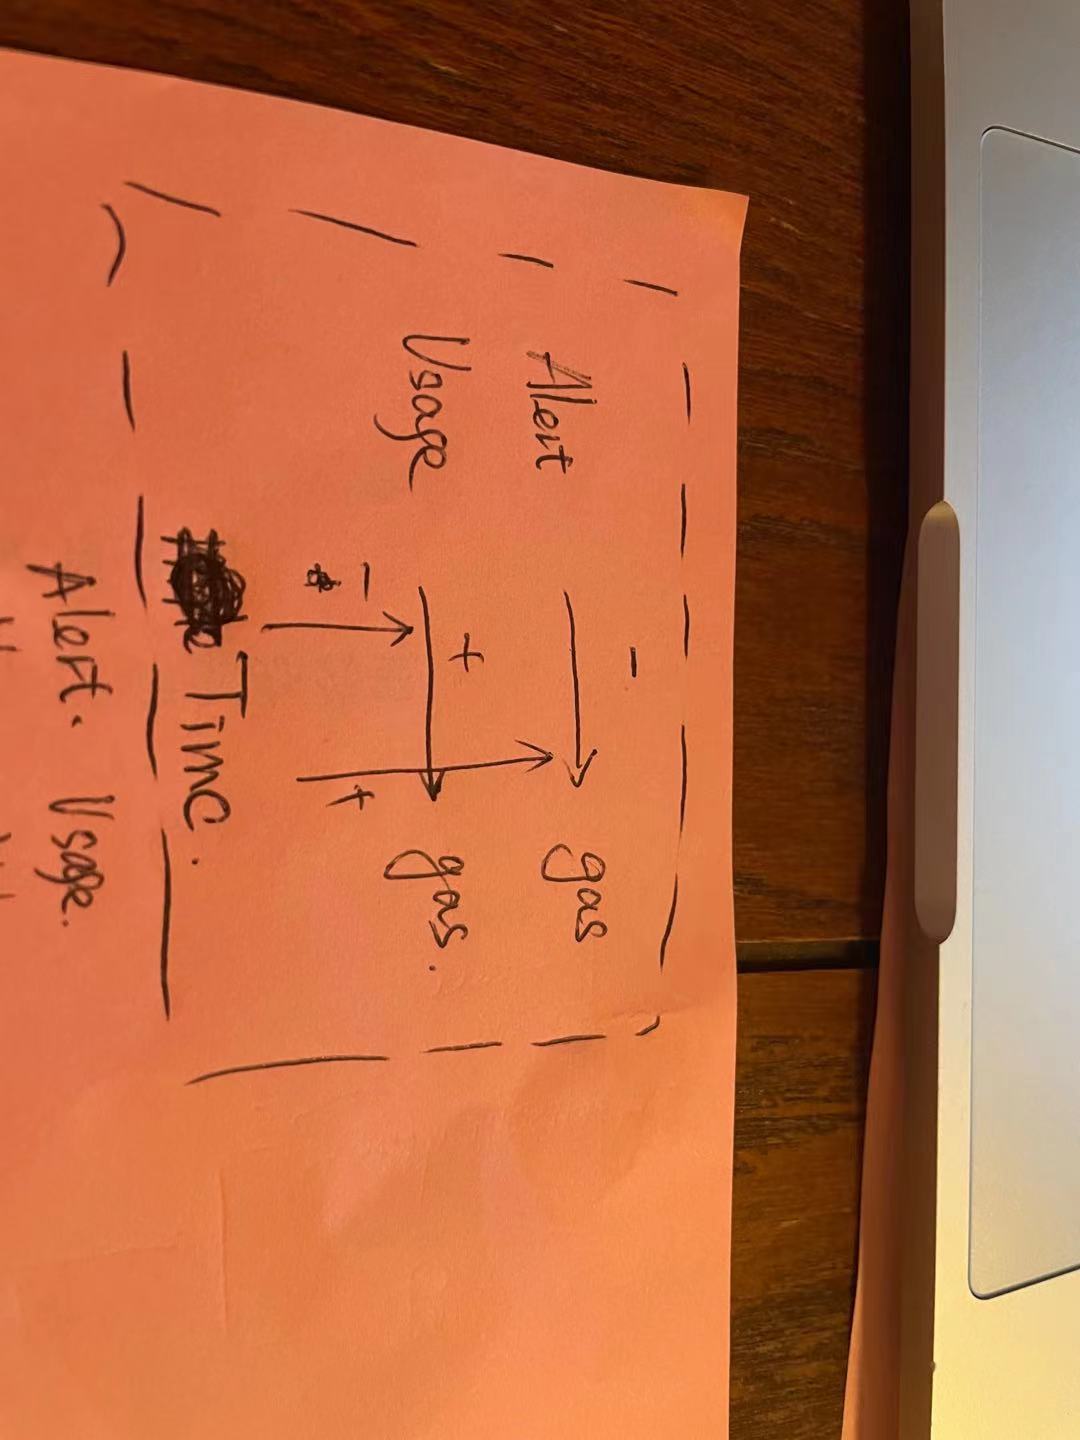 -
Alert → gas
+
Usage → gas.
- +
Time.
Alert. Usage.